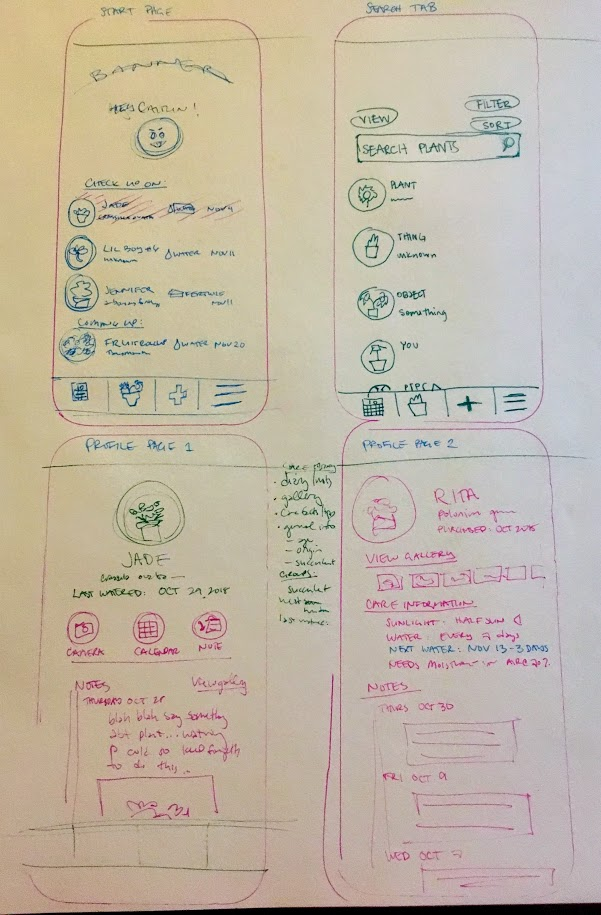 START PAGE
BANNER
HEY CAITLIN!
CHECK UP ON:
JADE
WATER NOV 4
LIL BOY #6
WATER NOV 11
JENNIFER
FERTILIZE
NOV 11
COMING UP:
FRUITROLLUP
WATER NOV 20
SEARCH TAB
VIEW
FILTER
SORT
SEARCH PLANTS
PLANT
THING
unknown
OBJECT
Something
YOU
PROFILE PAGE 1
JADE
LAST WATERED: OCT 29, 2018
CAMERA
CALENDAR
NOTE
NOTES
View gallery
THURSDAY OCT 28
blah blah say something
abt plant... watering
to do this...
diary/notes
gallery
general info
- age
- origin
- succulent
GROUPS-
succulent
PROFILE PAGE 2
RITA
PURCHASED: OCT 2018
VIEW GALLERY
CARE INFORMATION
SUNLIGHT: HALF SUN
WATER: EVERY 7 days
NEXT WATER: NOV 13 - 3 DAYS
NEEDS MOISTURE in AIR
NOTES
THURS OCT 30
FRI OCT 9
WED OCT 7